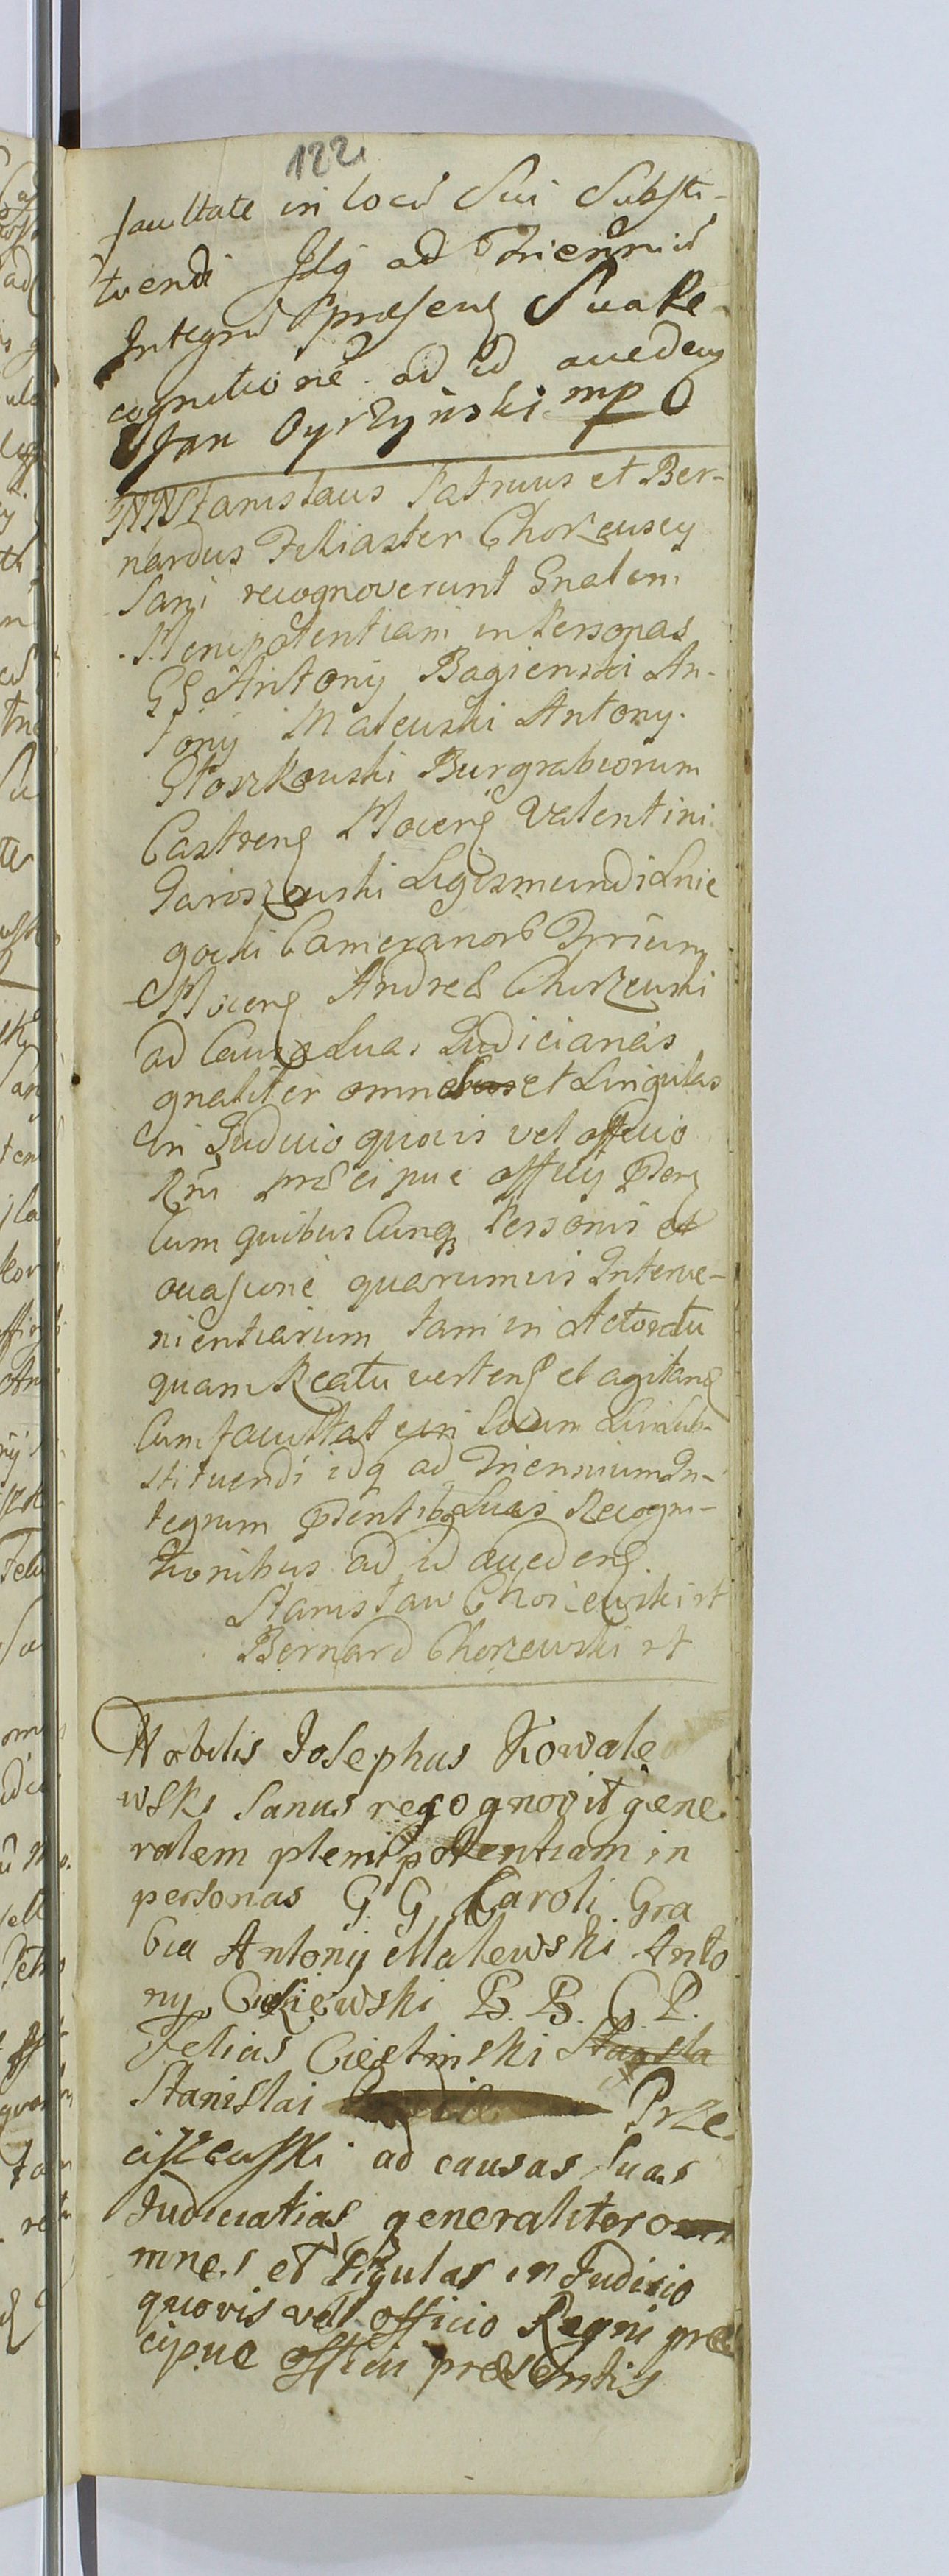 122
facultate in locū Sui Substi-
tuendi Idq ad Trienniū
Integrū præsens Sua Re-
cognitione ad id accedens
Jan Dyrzyński mp
NN Stanislaus Patruus et Ber-
nardus Filiaster Chorzewscy
Sani recognoverunt Gnalem
Plenipotentiam in Personas
GG Antonij Bagienski An-
tonij Malewski Antony
Burgrabiorum
Castrens Valentini
Jaroszewski Sigismundi Snie
gocki Cameranorū Trrium
Andreæ Chorzewski
ad Causas Suas Judiciarias
gnaliter omnes et Singulas
in Judicio quovis vel officio
Rni præcipue officij Psens
Cum quibus Cunq Personis et
occasione quarumvis Interve-
nientiarum tam in Actoratu
quam Reatu vertens et agitans
Cum facultate in Locum Sui Sub-
stituendi idq ad Triennium In-
tegrum Psentibs Suas Recogni-
tionibus ad id accedens
Stanisław Chorzewski
Bernard Chorzewski
Nobilis Josephus Kowale
wski Sanus recognovit gene
ralem plenipotentiam in
personas G G Caroli Gra
bia Antonij Malewski Anto
ny B. B. C P.
Felicis Cieslinski Stansla
Stanislai Prze
ciszewski ad causas suas
Judiciatias generaliter o
mnes et Sigulas in Judicio
quovis vell officio Regni præ
cipue officii præsentis